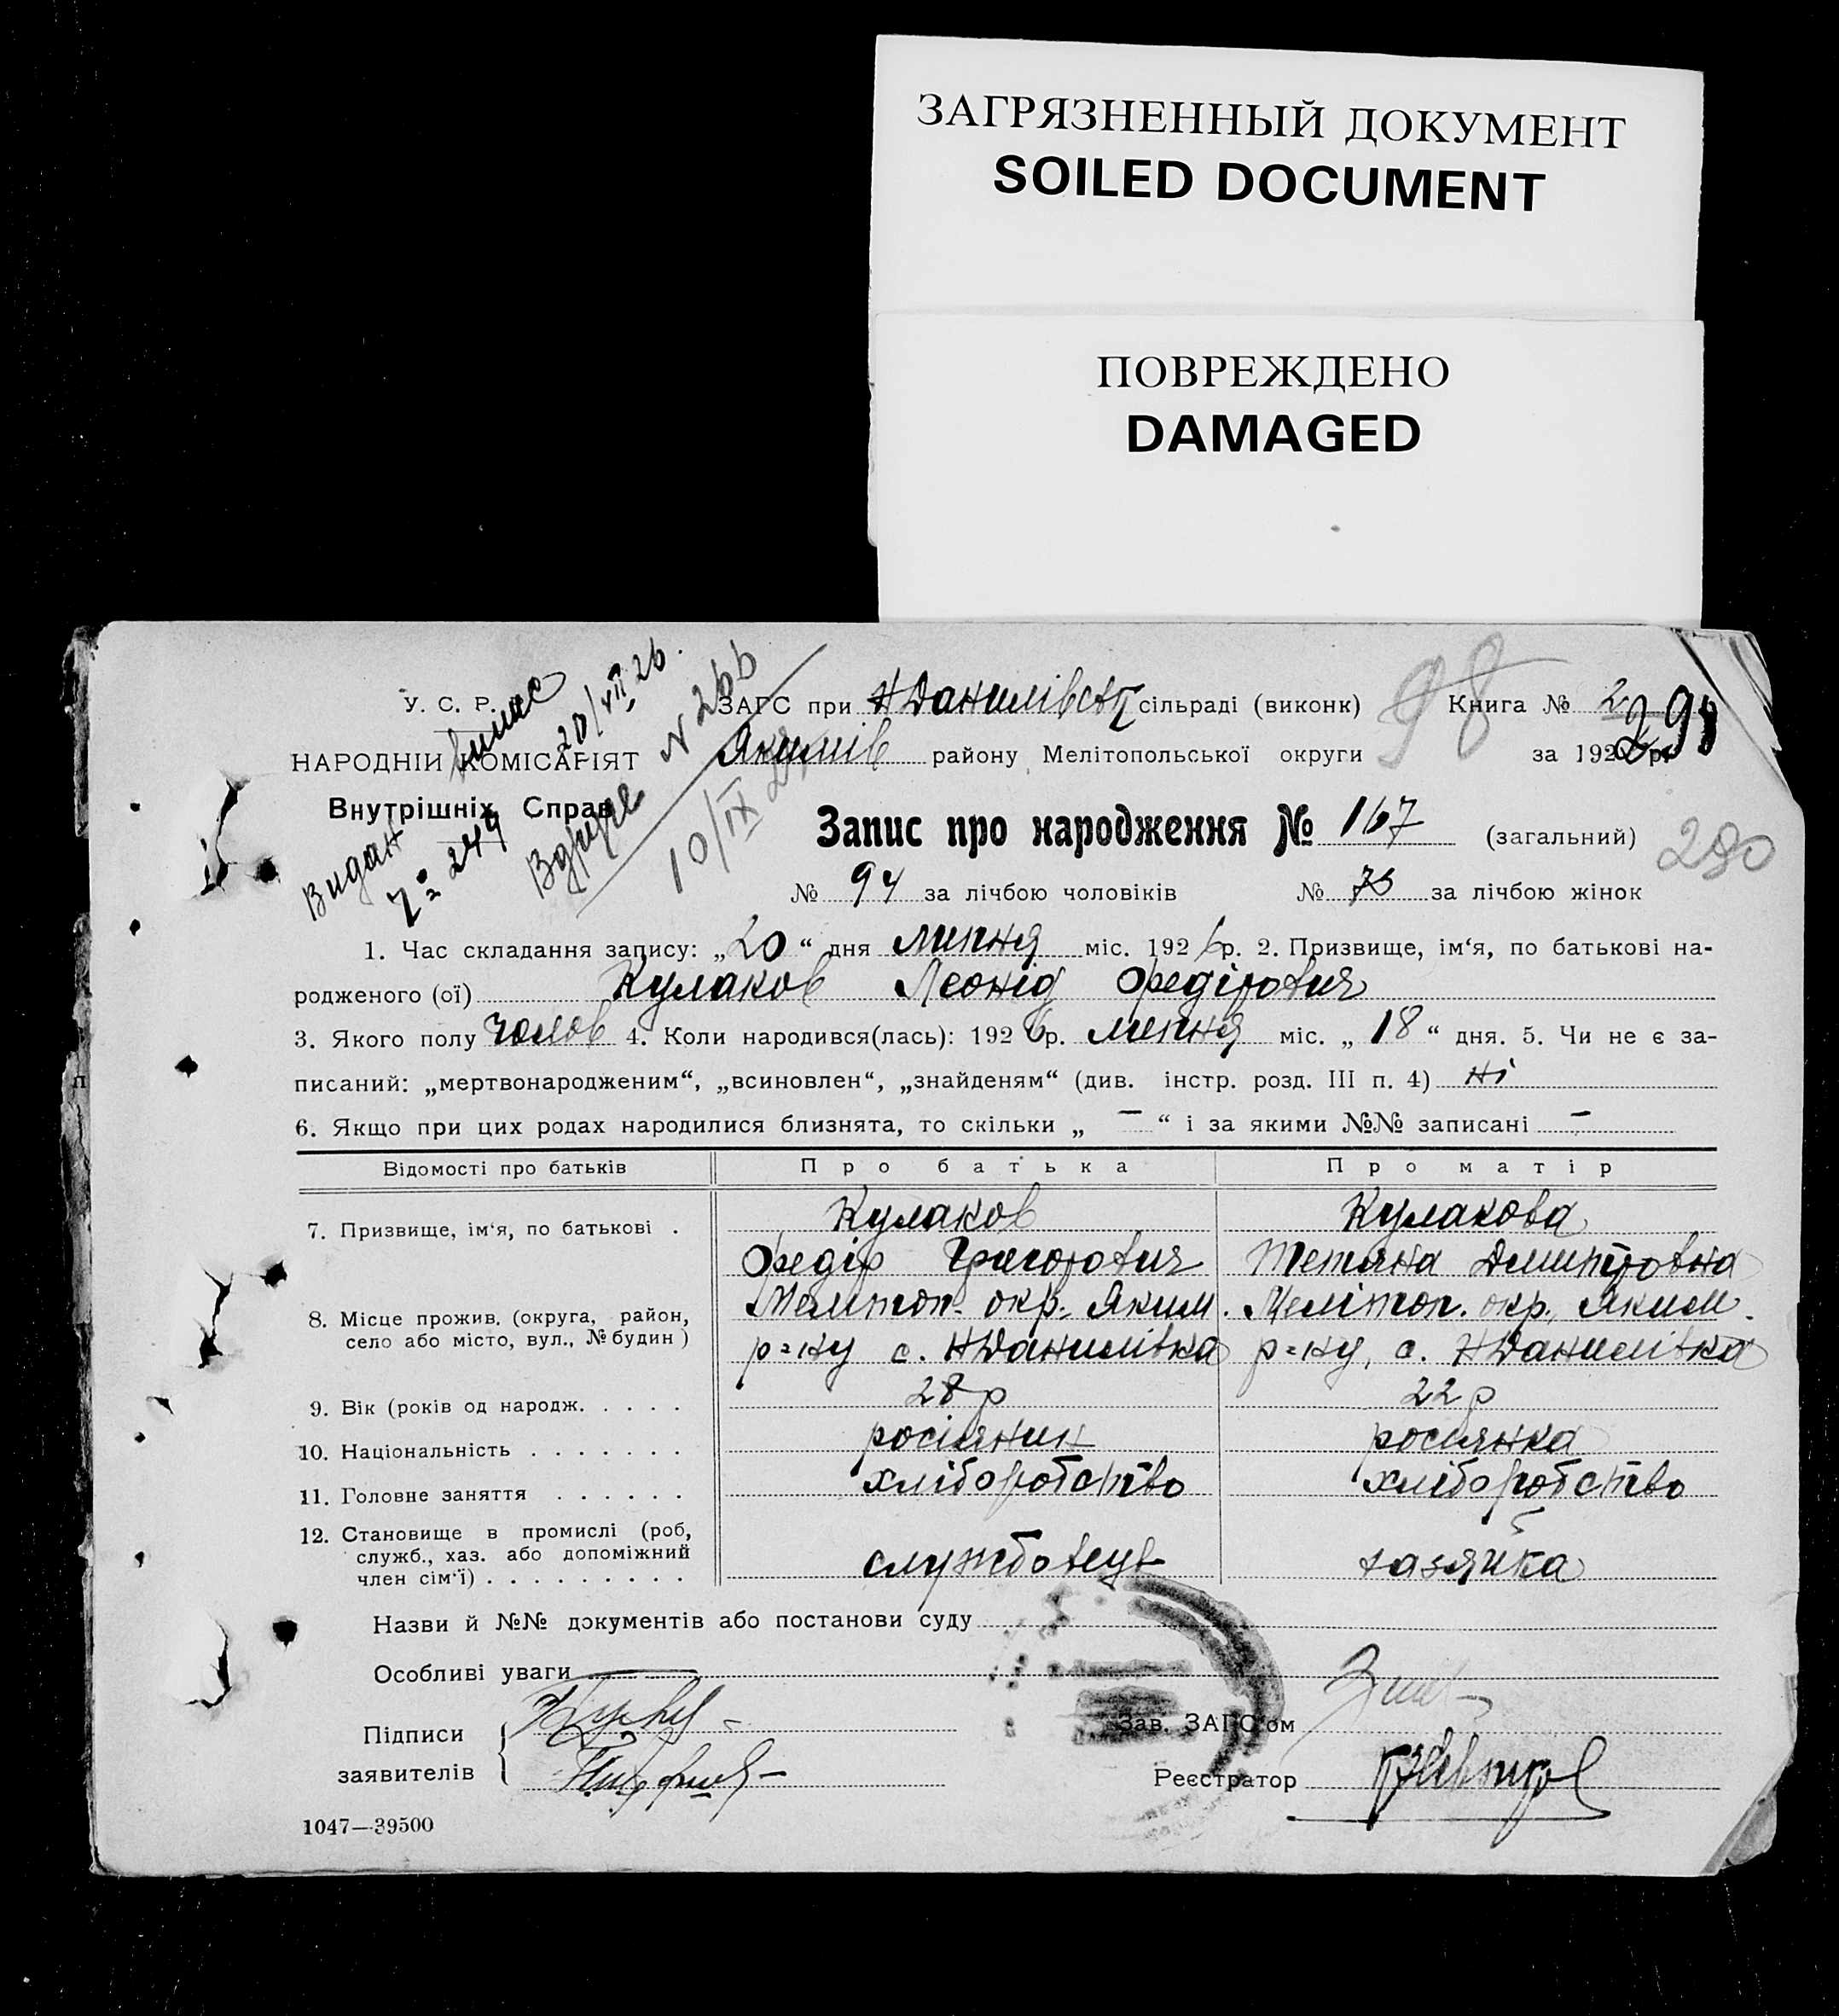 ЗАГРЯЗНЕННЫЙ ДОКУМЕНТ
SOILED DOCUMENT
ПОВРЕЖДЕНО
DAMAGED
У. С. Р.
НАРОДНІЙ КОМІСАРІЯТ
Внутрішніх Справ
Видан випис
№ 249 20/VII 26.
Вдруге № 266
10/IX
ЗАГС при НДанилівськ сільраді (виконк) Книга № 2
Якимів району Мелітопольської округи за 1926 р.
98
298
Запис про народження № 167 (загальний)
280
№ 94 за лічбою чоловіків № 73 за лічбою жінок
1. Час складання запису: „20“ дня липня міс. 1926 р. 2. Призвище, ім‘я, по батькові на-
родженого (ої) Кулаков Леонід Федірович
3. Якого полу чолов 4. Коли народився(лась): 1926 р. липня міс. „18“ дня. 5. Чи не є за-
писаний: „мертвонародженим“, „всиновлен“, „знайденям“ (див. інстр. розд. III п. 4) ні
6. Якщо при цих родах народилися близнята, то скільки „ — “ і за якими №№ записані —
Відомості про батьків Про батька Про матір
7. Призвище, ім‘я, по батькові . Кулаков Кулакова
Федір Григорович Тетяна Дмитровна
8. Місце прожив. (округа, район, Меліт​оп. окр., Яким. Мелітоп. окр., Яким.
село або місто, вул., № будин ) р=ну с. НДанилівка р=ну, с. НДанилівка
9. Вік (років од народж. . . . . 28 р 22 р
10. Національність . . . . . . . росіянин росіянка
11. Головне заняття . . . . . . хліборобство хліборобство
12. Становище в промислі (роб,
служб., хаз. або допоміжний службовець хазяйка
член сім‘ї) . . . . . . . . .
Назви й №№ документів або постанови суду
Особливі уваги
Підписи Зав. ЗАГС‘ом
заявителів Реєстратор
1047—39500